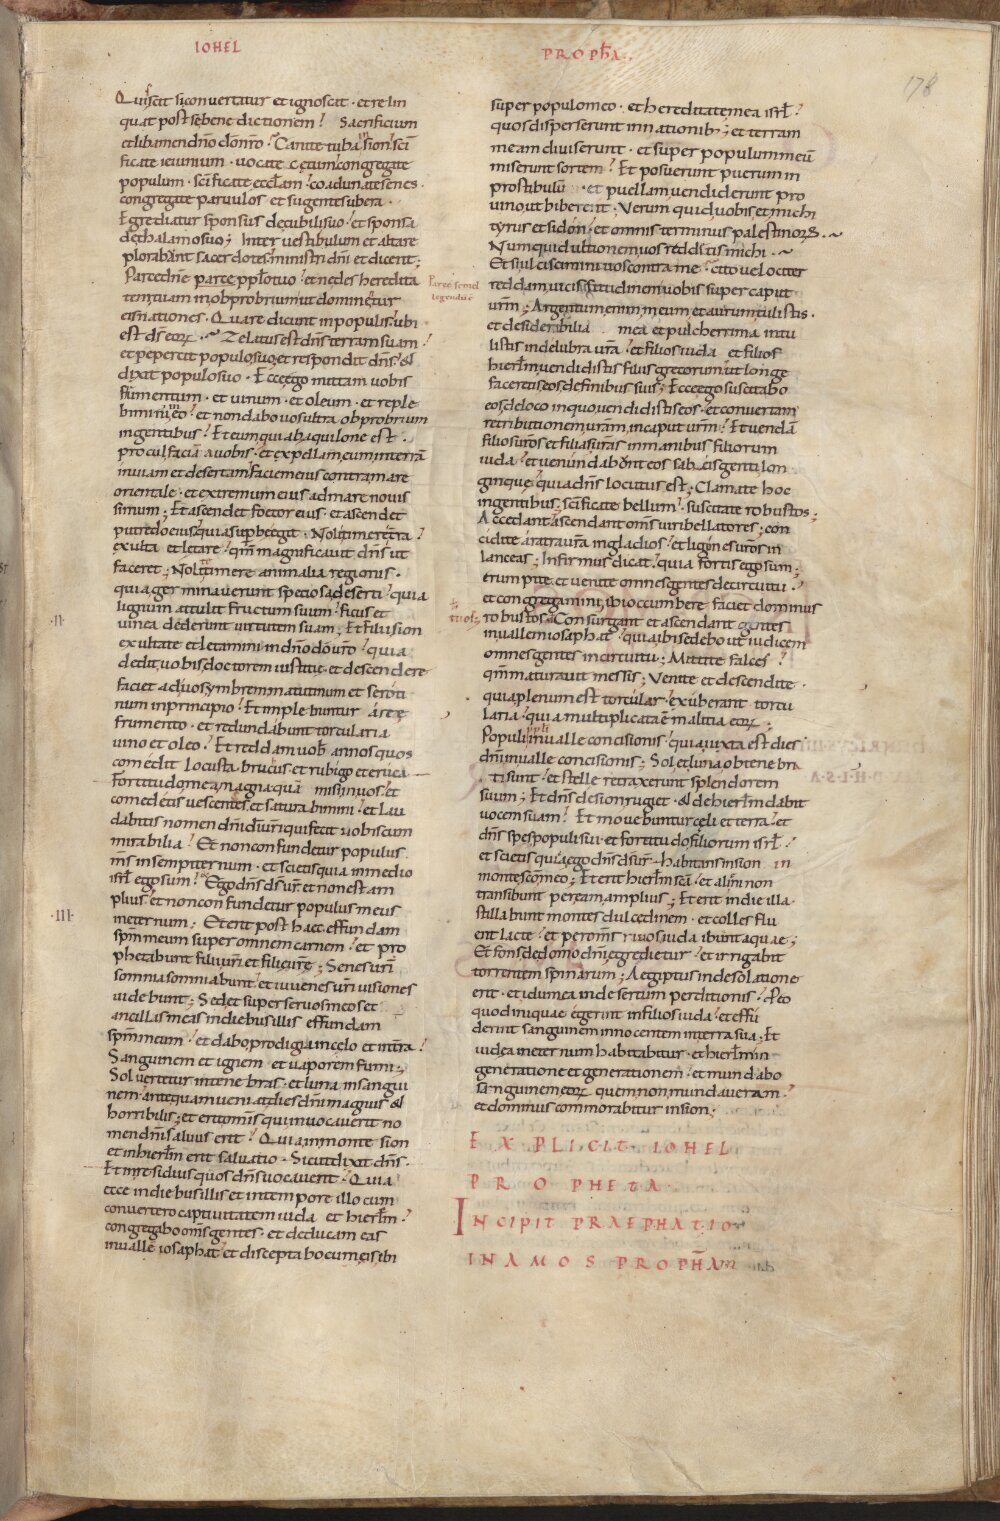 IOHEL
PROPħA.
178
Quis scit si convertatur et ignoscat · et relin
quat post se benedictionem? Sacrificium
et libamen dn̄o dōnr̄o? Canite tuba in sion · sc̄i
ficate ieiunium · vocate cętum congregate
populum · sc̄ificate eccl̄am · coadunate senes ·
congregate parvulos et sugentes ubera ·
Egrediatur sponsus de cubili suo · et sponsa
de thalamo suo; Inter vestibulum et altare
plorabunt sacerdotes ministri dn̄i et dicent;
Parce dn̄e parce pplo tuo · et ne des heredita
tem tuam in obprobrium ut dominetur
eis nationes · Quare dicunt in populis · ubi
est ds̄ eorꝝ · Zelatus est dn̄s terram suam
et pepercit populo suo, et respondit dn̄s · &
dixit populo suo · Ecce ego mittam vobis
frumentum · et vinum · et oleum · et reple
bimini in eo · et non dabo vos ultra obprobrium
in gentibus? Et eum qui ab aquilone est ·
procul faciā a vobis · et expellam eum in terrā
inviam et desertam? faciem eius contra mare
orientale · et extremum eius ad mare novis
simum; Et ascendet foetor eius · et ascendet
putredo eius quia superbe egit · Noli timere tr̄ra?
exulta et letare? qm̄ magnificavit dn̄s ut
faceret; Nolite timere animalia regionis ·
quia germinaverunt speciosa deserti? quia
lignum attulit fructum suum? ficus et
·II· vinea dederunt virtutem suam; Et filii sion
exultate et letamini in dn̄o dō vr̄o? quia
dedit vobis doctorem iustitię · et descendere
faciet ad vos ymbrem matutinum et seroti
num in principio? Et implebuntur areę
frumento · et redundabunt torcularia
vino et oleo? Et reddam vob annos quos
comedit locusta brucus · et rubigo et eruca
Fortitudo mea magna quā misi in vos? et
comedetis vescentes, et saturabimini? et lau
dabitis nomen dn̄i dī vr̄i qui fecit vobiscum
mirabilia? Et non confundetur populus
ms̄ in sempiternum · et scietis quia in medio
isrl̄ ego sum? Ego dn̄s ds̄ vr̄ et non est am
plius? et non confundetur populus meus
·III· in eternum; Et erit post haec effundam
spm̄ meum super omnem carnem? et pro
phetabunt filii vr̄i et filię vr̄ę; Senes vr̄i
somnia somniabunt? et iuvenes vr̄i visiones
videbunt; Sed et super servos meos et
ancillas meas in diebus illis effundam
spm̄ meum? et dabo prodigia in celo et in tr̄ra?
Sanguinem et ignem et vaporem fumi;
Sol vertetur in tenebras · et luna in sangui
nem antequam veniat dies dn̄i magnus &
horribilis; et erit om̄is qui invocaverit no
men dn̄i salvus erit? Quia in monte sion
et in hierl̄m erit salvatio · Sicut dixit dn̄s ·
Et in residuis quos dn̄s vocaverit · Quia
ecce in diebus illis et in tempore illo cum
convertero captivitatem iuda et hierl̄m?
congregabo om̄s gentes · et deducam eas
in vallē iosaphat? et disceptabo cum eis ibi
Parce semel
legendū ē
super populo meo · et hereditate mea isrl̄?
quos disperserunt in nationib; et terram
meam diviserunt · et super populum meū
miserunt sortem? Et posuerunt puerum in
prostibulū · et puellam vendiderunt pro
vino ut biberent · Verum quid vobis et michi
tyrus et sidon? et omnis terminus palestinorꝝ ·
Numquid ultionem vos redditis michi ·
Et si ulciscimini vos contra me? cito velociter
reddam vicissitudinem vobis super caput
vr̄m; Argentum enim meum et aurum tulistis ·
et desiderabilia mea et pulcherrima intu
listis in delubra vr̄a? et filios iuda et filios
hierl̄m vendidistis filiis grecorum ut longe
faceretis eos de finibus suis; Ecce ego suscitabo
eos de loco in quo vendidistis eos? et convertam
retributionem vr̄am in caput vr̄m? Et vendā
filios vr̄os et filias vr̄as in manibus filiorum
iuda? et venundabunt eos sabeis genti lon
ginquę quia dn̄s locutus est; Clamate hoc
in gentibus; sc̄ificate bellum? suscitate robustos;
Accedant ascendant om̄s viri bellatores; con
cidite aratra vr̄a in gladios? et ligones vr̄os in
lanceas; Infirmus dicat? quia fortis ego sum;
erumpite et venite omnes gentes de circuitu?
et congregamini, ibi occumbere faciet dominus
robustos tuos; Consurgant et ascendant gentes
in vallem iosaphat? quia ibi sedebo ut iudicem
omnes gentes in circuitu; Mittite falces?
qm̄ maturavit messis; Venite et descendite ·
quia plenum est torcular? exuberant torcu
laria? quia multiplicata ē malitia eorꝝ;
Populi populi in valle concisionis? quia iuxta est dies
dn̄i in valle concisionis; Sol et luna obtenebra
ti sunt? et stelle retraxerunt splendorem
suum; Et dn̄s de sion rugiet · & de hierl̄m dabit
vocem suam? Et movebuntur cęli et terra? et
dn̄s spes populi sui · et fortitudo filiorum isrl̄?
et scietis quia ego dn̄s ds̄ vr̄ habitans in sion in
monte sc̄o meo; Et erit hierl̄m sc̄a? et alieni non
transibunt per eam amplius; Et erit in die illa ·
stillabunt montes dulcedinem · et colles flu
ent lacte? et per om̄s rivos iuda ibunt aquae;
Et fons de domo dn̄i egredietur? et irrigabit
torrentem spinarum; Aegiptus in desolatione
erit · et idumea in desertum perditionis? P eo
quod inique egerint in filios iuda? et effu
derint sanguinem innocentem in terra sua; Et
iudea in eternum habitabitur · et hierl̄m in
generatione et generationem? et mundabo
sanguinem eorꝝ quem non mundaveram?
et dominus commorabitur in sion;
EXPLICIT IOHEL
PROPHETA.
INCIPIT PRAEPHATIO
IN AMOS PROPH̄AM